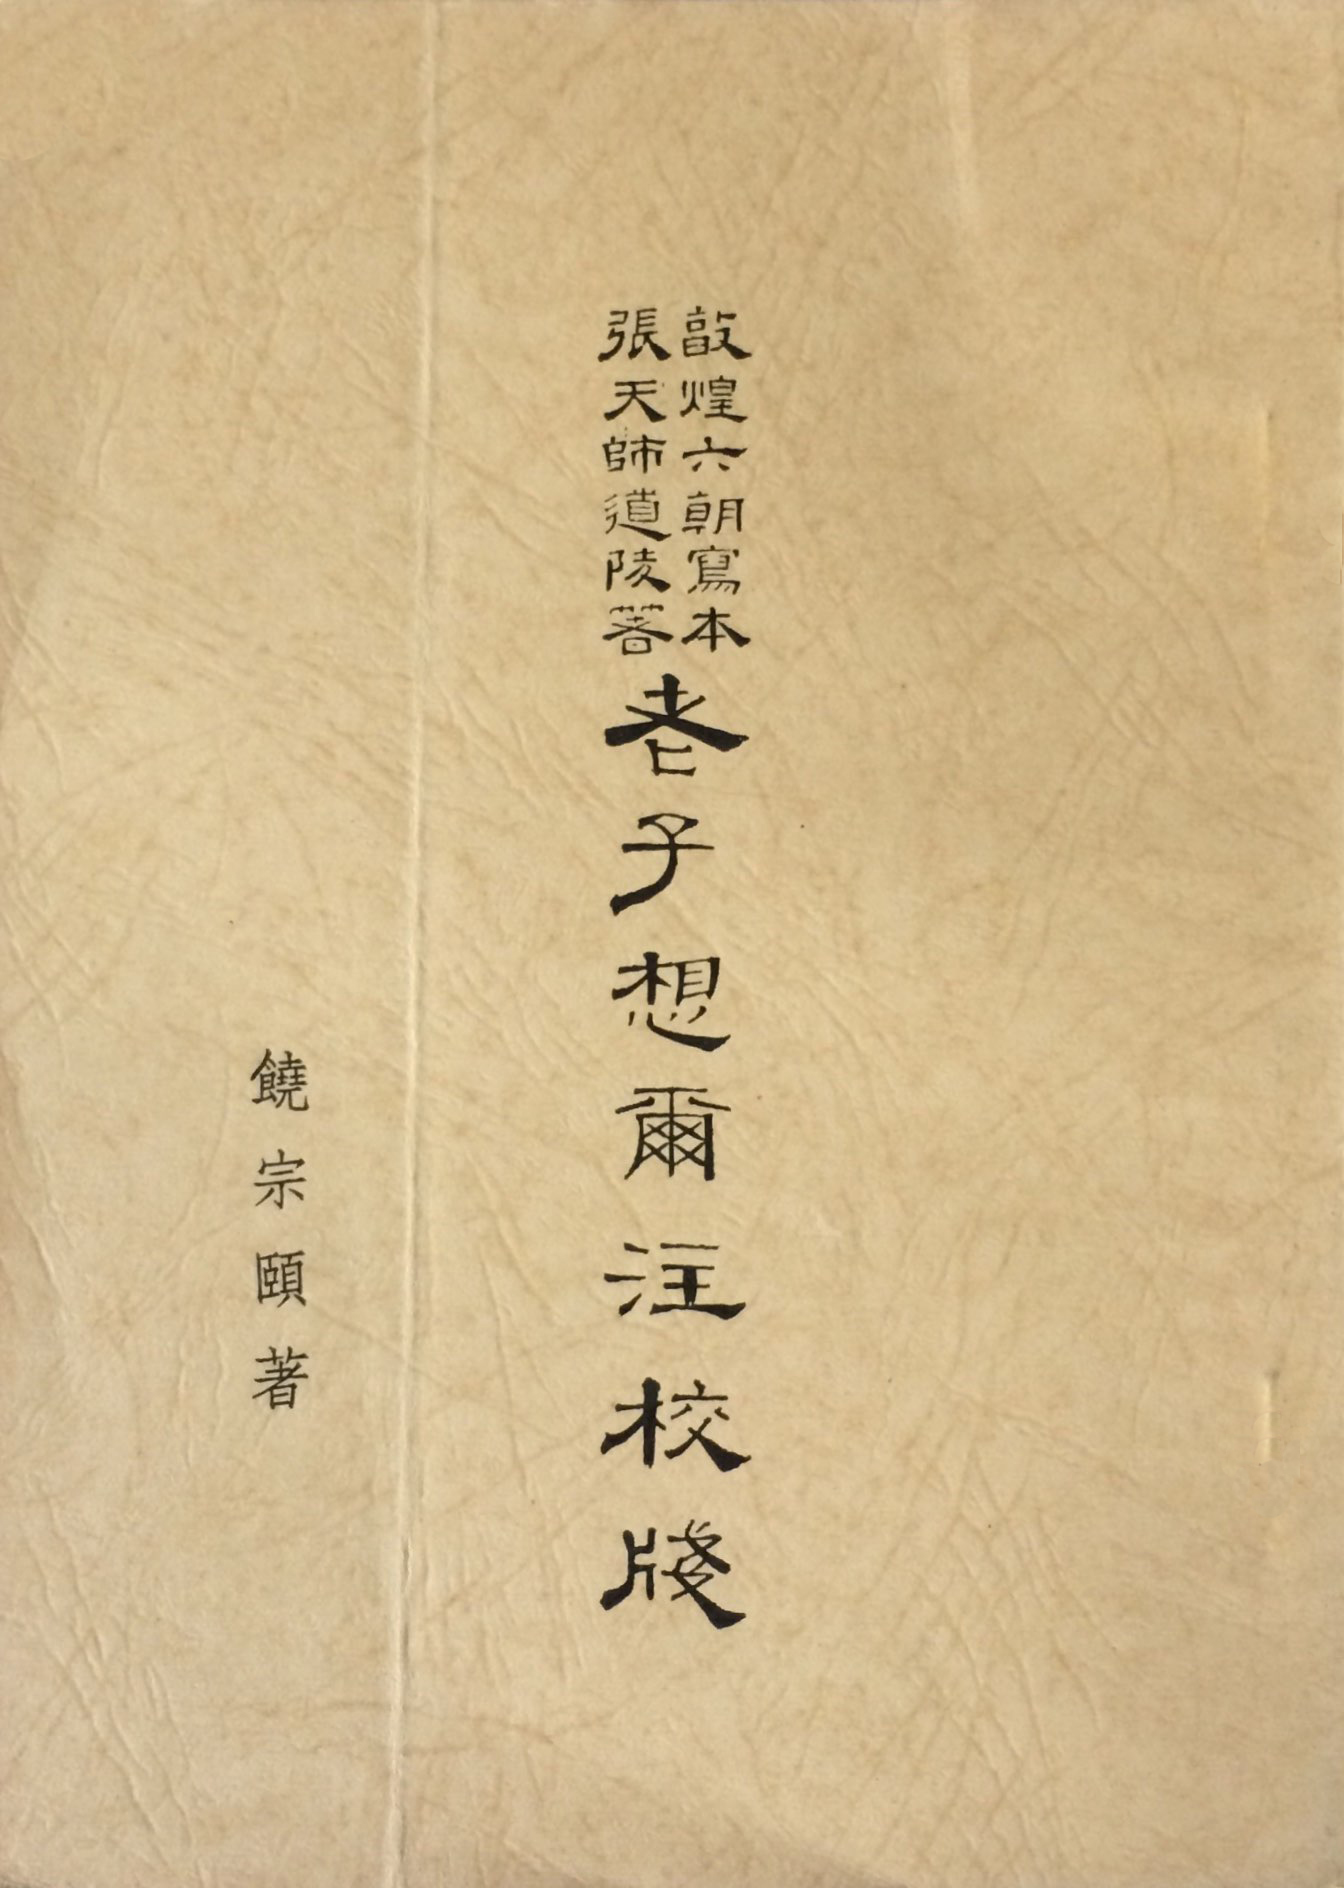 敦煌六朝寫本
張天師道陵著
老子想爾注校牋
饒宗頤著